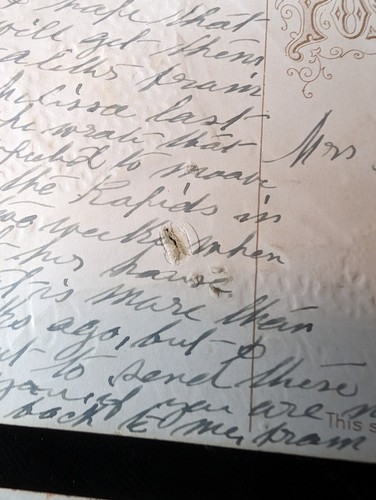 hope that
will get them
from
last
wrote that
to moove
the Rapids in
weeks when
her house.
is more than
ago, but I
to send these
you, if you are
back to me, from
Mrs
This s